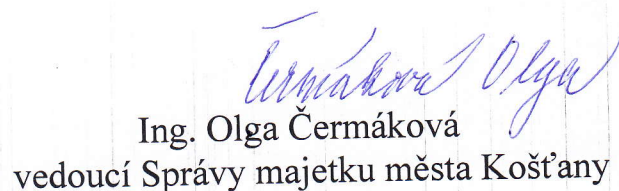 Čermáková Olga
Ing. Olga Čermáková
vedoucí Správy majetku města Košťany